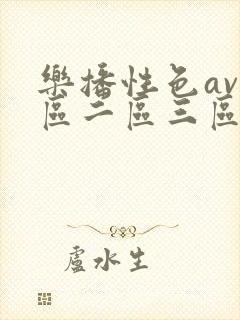 樂播性色av
區二區三區
盧水生